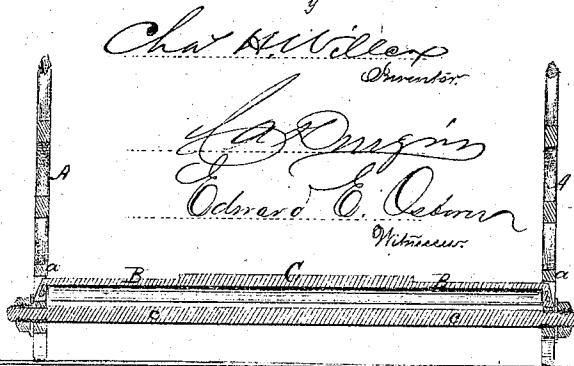 Chas H. Willcox
Inventor.
Edward E. Osborn
Witnesses.
A A
a a
B C B
c c